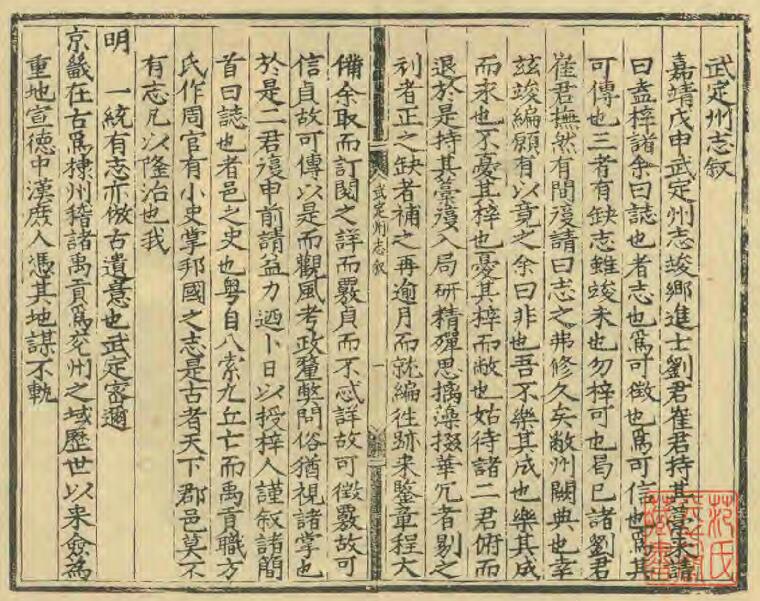 武定州志叙
嘉靖戊申武定州志竣鄉進士劉君崔君持其藁来請
曰盍梓諸余曰誌也者志也為可徴也為可信也為其
可傳也三者有缺志雖竣未也勿梓可也曷已諸劉君
崔君憮然有間復請曰志之弗修久矣敝州闕典也幸
兹竣編願有以竟之余曰非也吾不樂其成也樂其成
而永也不憂其梓也憂其梓而敝也姑待諸二君俯而
退於是持其藁復入局研精殫思摛藻掇華冗者剔之
列者正之缺者補之再逾月而就編徃跡来鑒章程大
備余取而訂閲之詳而覈貞而不惑詳故可徴覈故可
信貞故可傳以是而觀風考政釐獘問俗猶視諸掌也
於是二君復申前請益力迺卜日以授梓人謹叙諸簡
首曰誌也者邑之史也粤自八索九丘亡而禹貢職方
氏作周官有小史掌邦國之志是古者天下郡邑莫不
有志凡以隆治也我
明一統有志亦倣古遺意也武定密邇
京畿在古為棣州稽諸禹貢為兖州之域歷世以来僉為
重地宣德中漢庶人憑其地謀不軌
武定州志叙
一
范氏